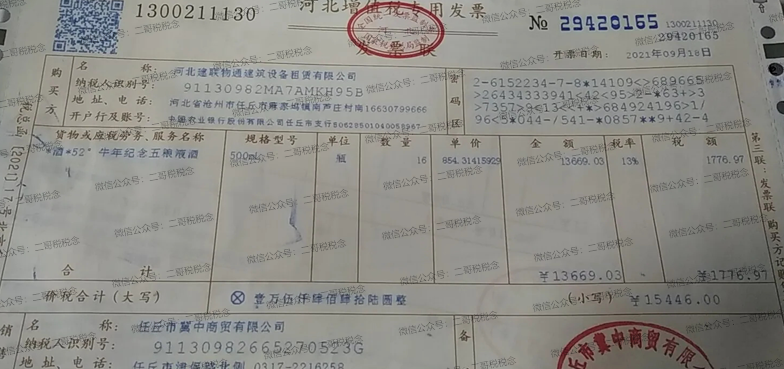 1300211130
河北增值税专用发票
发票联
№ 29420165
1300211130
29420165
开票日期: 2021年09月18日
购买方
名 称: 河北建联物通建筑设备租赁有限公司
纳税人识别号: 91130982MA7AMKH95B
地址、电话: 河北省沧州市任丘市麻家坞镇南芦庄村南16630799666
开户行及账号: 中国农业银行股份有限公司任丘市支行
密码区
2-6152234-7-8*14109<>689665
>26434333941<42<95>2-*63+>3
>7357>9<13<+*>684924196>1/
96<5*044-/541-*0857**9+42-4
货物或应税劳务、服务名称 规格型号 单位 数量 单价 金额 税率 税额
*酒*52°牛年纪念五粮液酒 500ml 瓶 16 854.31415929 13669.03 13% 1776.97
合计 ¥13669.03 ¥1776.97
价税合计(大写) ⊗ 壹万伍仟肆佰肆拾陆圆整 (小写) ¥15446.00
销
名 称: 任丘市冀中商贸有限公司
纳税人识别号: 91130982665270523G
地址、电话: 任丘市建保路北侧 0317-2216258
备
第三联:发票联 购买方
任丘市冀中商贸有限公
微信公众号:二哥税税念